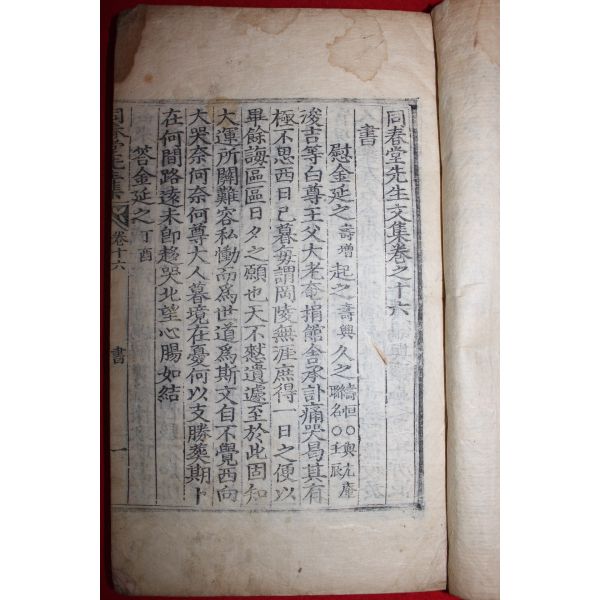 同春堂先生文集卷之十六
書
慰金延之壽增起之壽興久之壽恒○與尤庵聯名○壬辰
浚吉等白尊王父大老奄捐館舍承訃痛哭曷其有
極不思西日已暮每謂岡陵無涯庶得一日之便以
畢餘誨區區日夕之願也天不憖遺遽至於此固知
大運所關難容私慟而爲世道爲斯文自不覺西向
大哭奈何奈何尊大人暮境在憂何以支勝葬期卜
在何間路遠未卽趍哭北望心腸如結
答金延之丁酉
同春堂先生集 卷十六 書 一